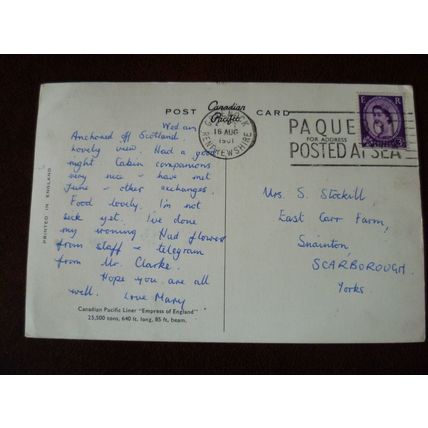 POST Canadian Pacific CARD
GREENOCK
RENFREWSHIRE
16 AUG
1961
PAQUE
FOR ADDRESS
POSTED AT SEA
E R
3D
Wed am
Anchored off Scotland
Lovely view. Had a good
night Cabin companions
very nice - have met
June - other exchanges.
Food lovely. I'm not
sick yet. I've done
my ironing. Had flowers
from staff & telegram
from Mr. Clarke.
Hope you are all
well. Love Mary
Mrs. S. Stockill,
East Carr Farm,
Snainton,
SCARBOROUGH.
Yorks.
PRINTED IN ENGLAND
Canadian Pacific Liner "Empress of England"
25,500 tons, 640 ft. long, 85 ft. beam.